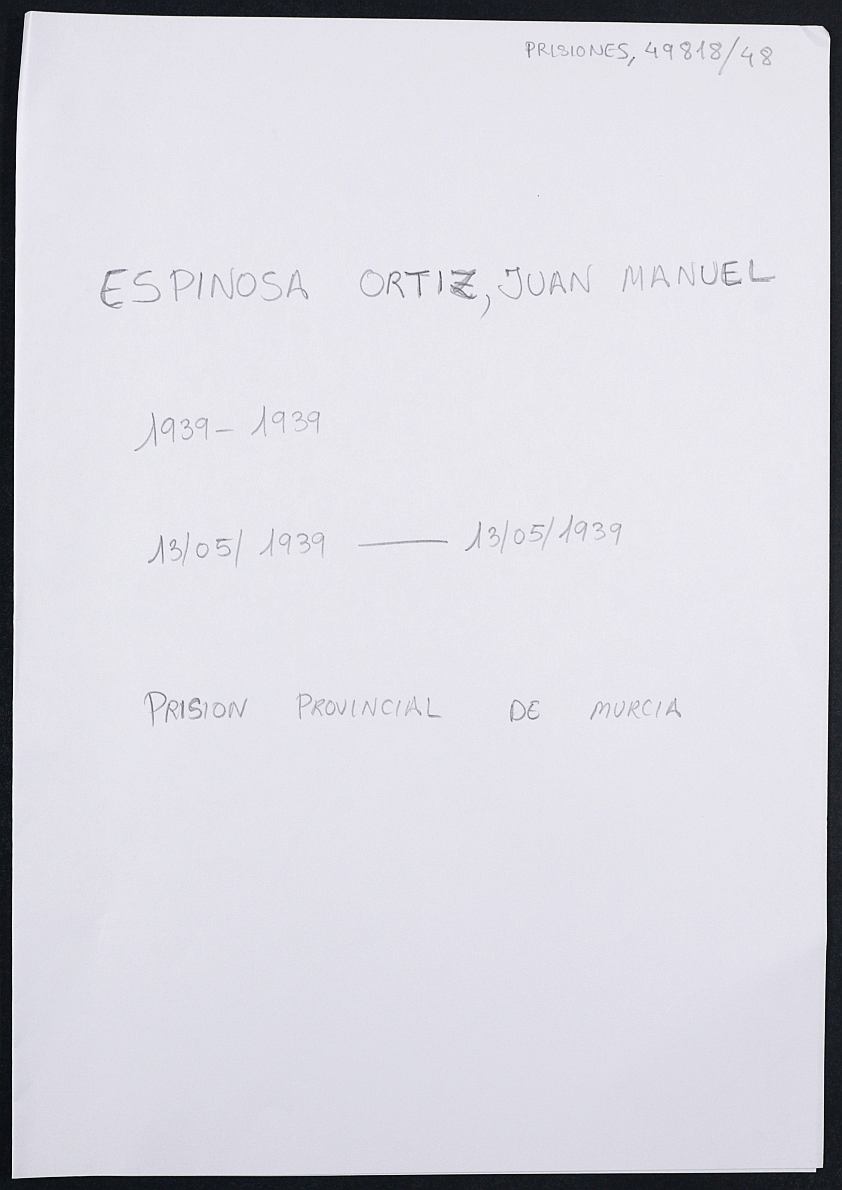 PRISIONES, 49818/48
ESPINOSA ORTIZ, JUAN MANUEL
1939- 1939
13/05/ 1939 —— 13/05/1939
PRISION PROVINCIAL DE MURCIA